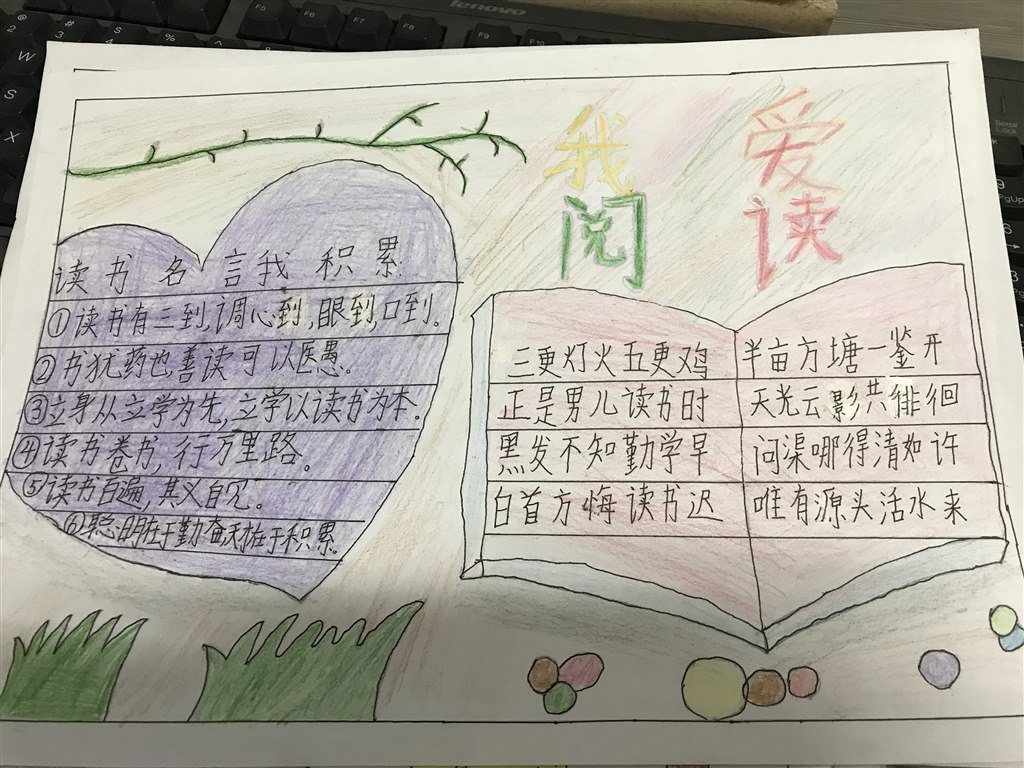 我爱
阅读
读书名言我积累
①读书有三到,调心到,眼到,口到。
②书犹药也善读可以医愚。
③立身从立学为先,立学以读书为本。
④读书卷书,行万里路。
⑤读书百遍,其义自见。
⑥聪明在于勤奋天才在于积累。
三更灯火五更鸡
正是男儿读书时
黑发不知勤学早
白首方悔读书迟
半亩方塘一鉴开
天光云影共徘徊
问渠哪得清如许
唯有源头活水来
lenovo